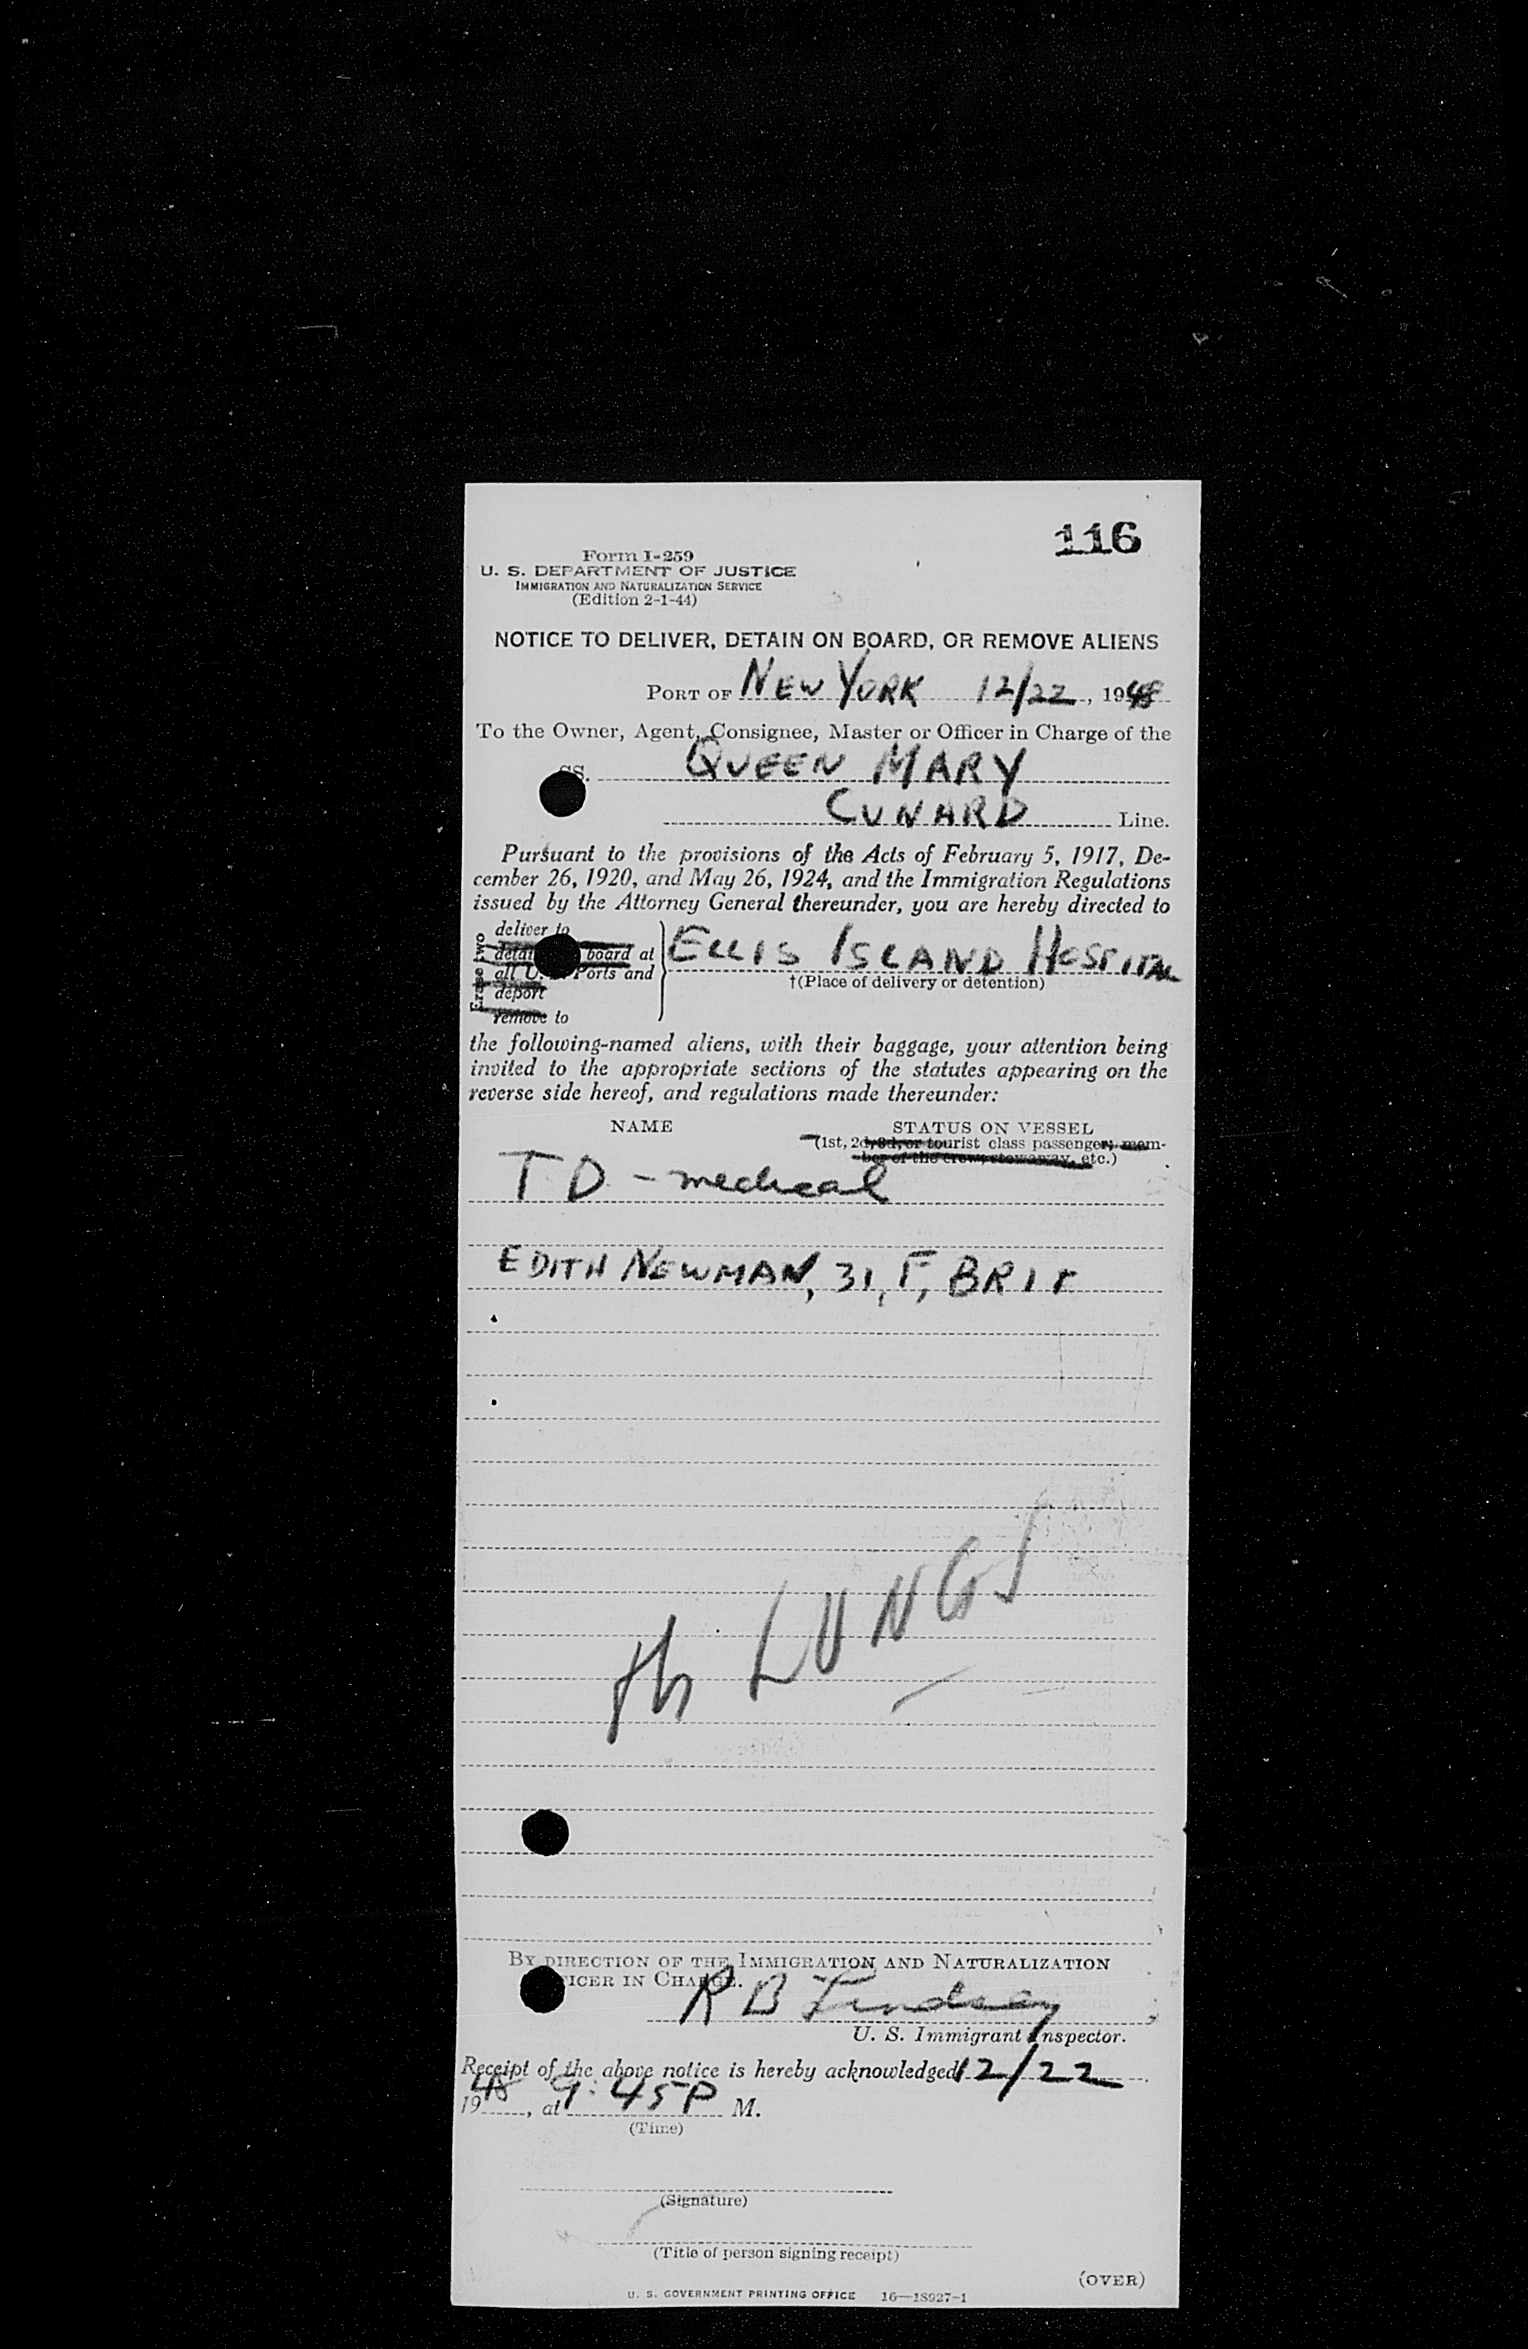 116
Form I-259
U. S. DEPARTMENT OF JUSTICE
IMMIGRATION AND NATURALIZATION SERVICE
(Edition 2-1-44)
NOTICE TO DELIVER, DETAIN ON BOARD, OR REMOVE ALIENS
PORT OF NEW YORK 12/22, 1948
To the Owner, Agent, Consignee, Master or Officer in Charge of the
SS. QUEEN MARY
CUNARD Line.
Pursuant to the provisions of the Acts of February 5, 1917, De-
cember 26, 1920, and May 26, 1924, and the Immigration Regulations
issued by the Attorney General thereunder, you are hereby directed to
Erase two
deliver to
board at
all U. Ports and
deport
remove to
ELLIS ISLAND HOSPITAL
†(Place of delivery or detention)
the following-named aliens, with their baggage, your attention being
invited to the appropriate sections of the statutes appearing on the
reverse side hereof, and regulations made thereunder:
NAME STATUS ON VESSEL
(1st, 2d, 3d, or tourist class passenger; mem-
ber of the crew, stowaway, etc.)
T D - medical
EDITH NEWMAN, 31, F, BRIT
LUNGS
BY DIRECTION OF THE IMMIGRATION AND NATURALIZATION
ICER IN CHARGE.
R B Lindsay
U. S. Immigrant Inspector.
Receipt of the above notice is hereby acknowledged 12/22
1948, at 9:45 P M.
(Time)
(Signature)
(Title of person signing receipt)
(OVER)
U. S. GOVERNMENT PRINTING OFFICE 16—18927-1